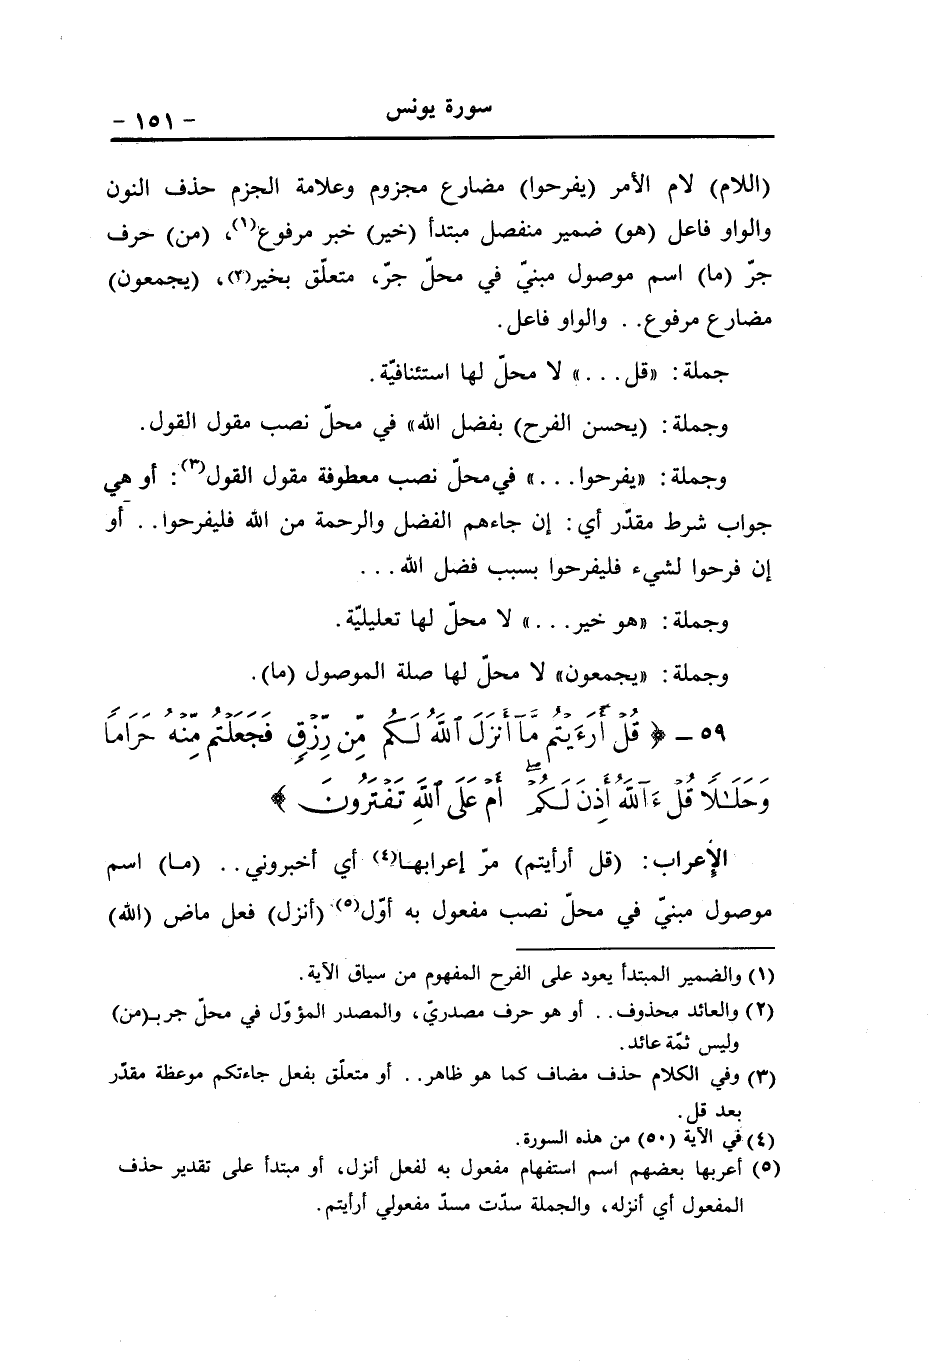 سورة يونس
- ١٥١ -
(اللام) لام الأمر (يفرحوا) مضارع مجزوم وعلامة الجزم حذف النون
والواو فاعل (هو) ضمير منفصل مبتدأ (خير) خبر مرفوع(١)، (من) حرف
جرّ (ما) اسم موصول مبنيّ في محلّ جرّ، متعلّق بخير(٢)، (يجمعون)
مضارع مرفوع.. والواو فاعل.
جملة: «قل...» لا محلّ لها استئنافيّة.
وجملة: (يحسن الفرح) بفضل الله» في محلّ نصب مقول القول.
وجملة: «يفرحوا...» في محلّ نصب معطوفة مقول القول(٣): أو هي
جواب شرط مقدّر أي: إن جاءهم الفضل والرحمة من الله فليفرحوا.. أو
إن فرحوا لشيء فليفرحوا بسبب فضل الله...
وجملة: «هو خير...» لا محلّ لها تعليليّة.
وجملة: «يجمعون» لا محلّ لها صلة الموصول (ما).
٥٩ - ﴿ قُلْ أَرَءَيْتُم مَّآ أَنزَلَ ٱللَّهُ لَكُم مِّن رِّزْقٍ فَجَعَلْتُم مِّنْهُ حَرَامًا
وَحَلَـٰلًا قُلْ ءَآللَّهُ أَذِنَ لَكُمْ ۖ أَمْ عَلَى ٱللَّهِ تَفْتَرُونَ ﴾
الإعراب: (قل أرأيتم) مرّ إعرابها(٤) أي أخبروني.. (ما) اسم
موصول مبنيّ في محلّ نصب مفعول به أوّل(٥) (أنزل) فعل ماض (الله)
(١) والضمير المبتدأ يعود على الفرح المفهوم من سياق الآية.
(٢) والعائد محذوف.. أو هو حرف مصدريّ، والمصدر المؤوّل في محلّ جر بـ(من)
وليس ثمّة عائد.
(٣) وفي الكلام حذف مضاف كما هو ظاهر.. أو متعلّق بفعل جاءتكم موعظة مقدّر
بعد قل.
(٤) في الآية (٥٠) من هذه السورة.
(٥) أعربها بعضهم اسم استفهام مفعول به لفعل أنزل، أو مبتدأ على تقدير حذف
المفعول أي أنزله، والجملة سدّت مسدّ مفعولي أرأيتم.